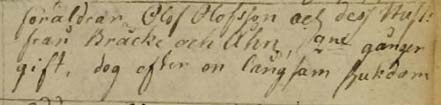 föräldrar Olof Olofsson och dess Hust:
från Bräcke och Åhn, gånger
gift, dog efter en långsam siukdom